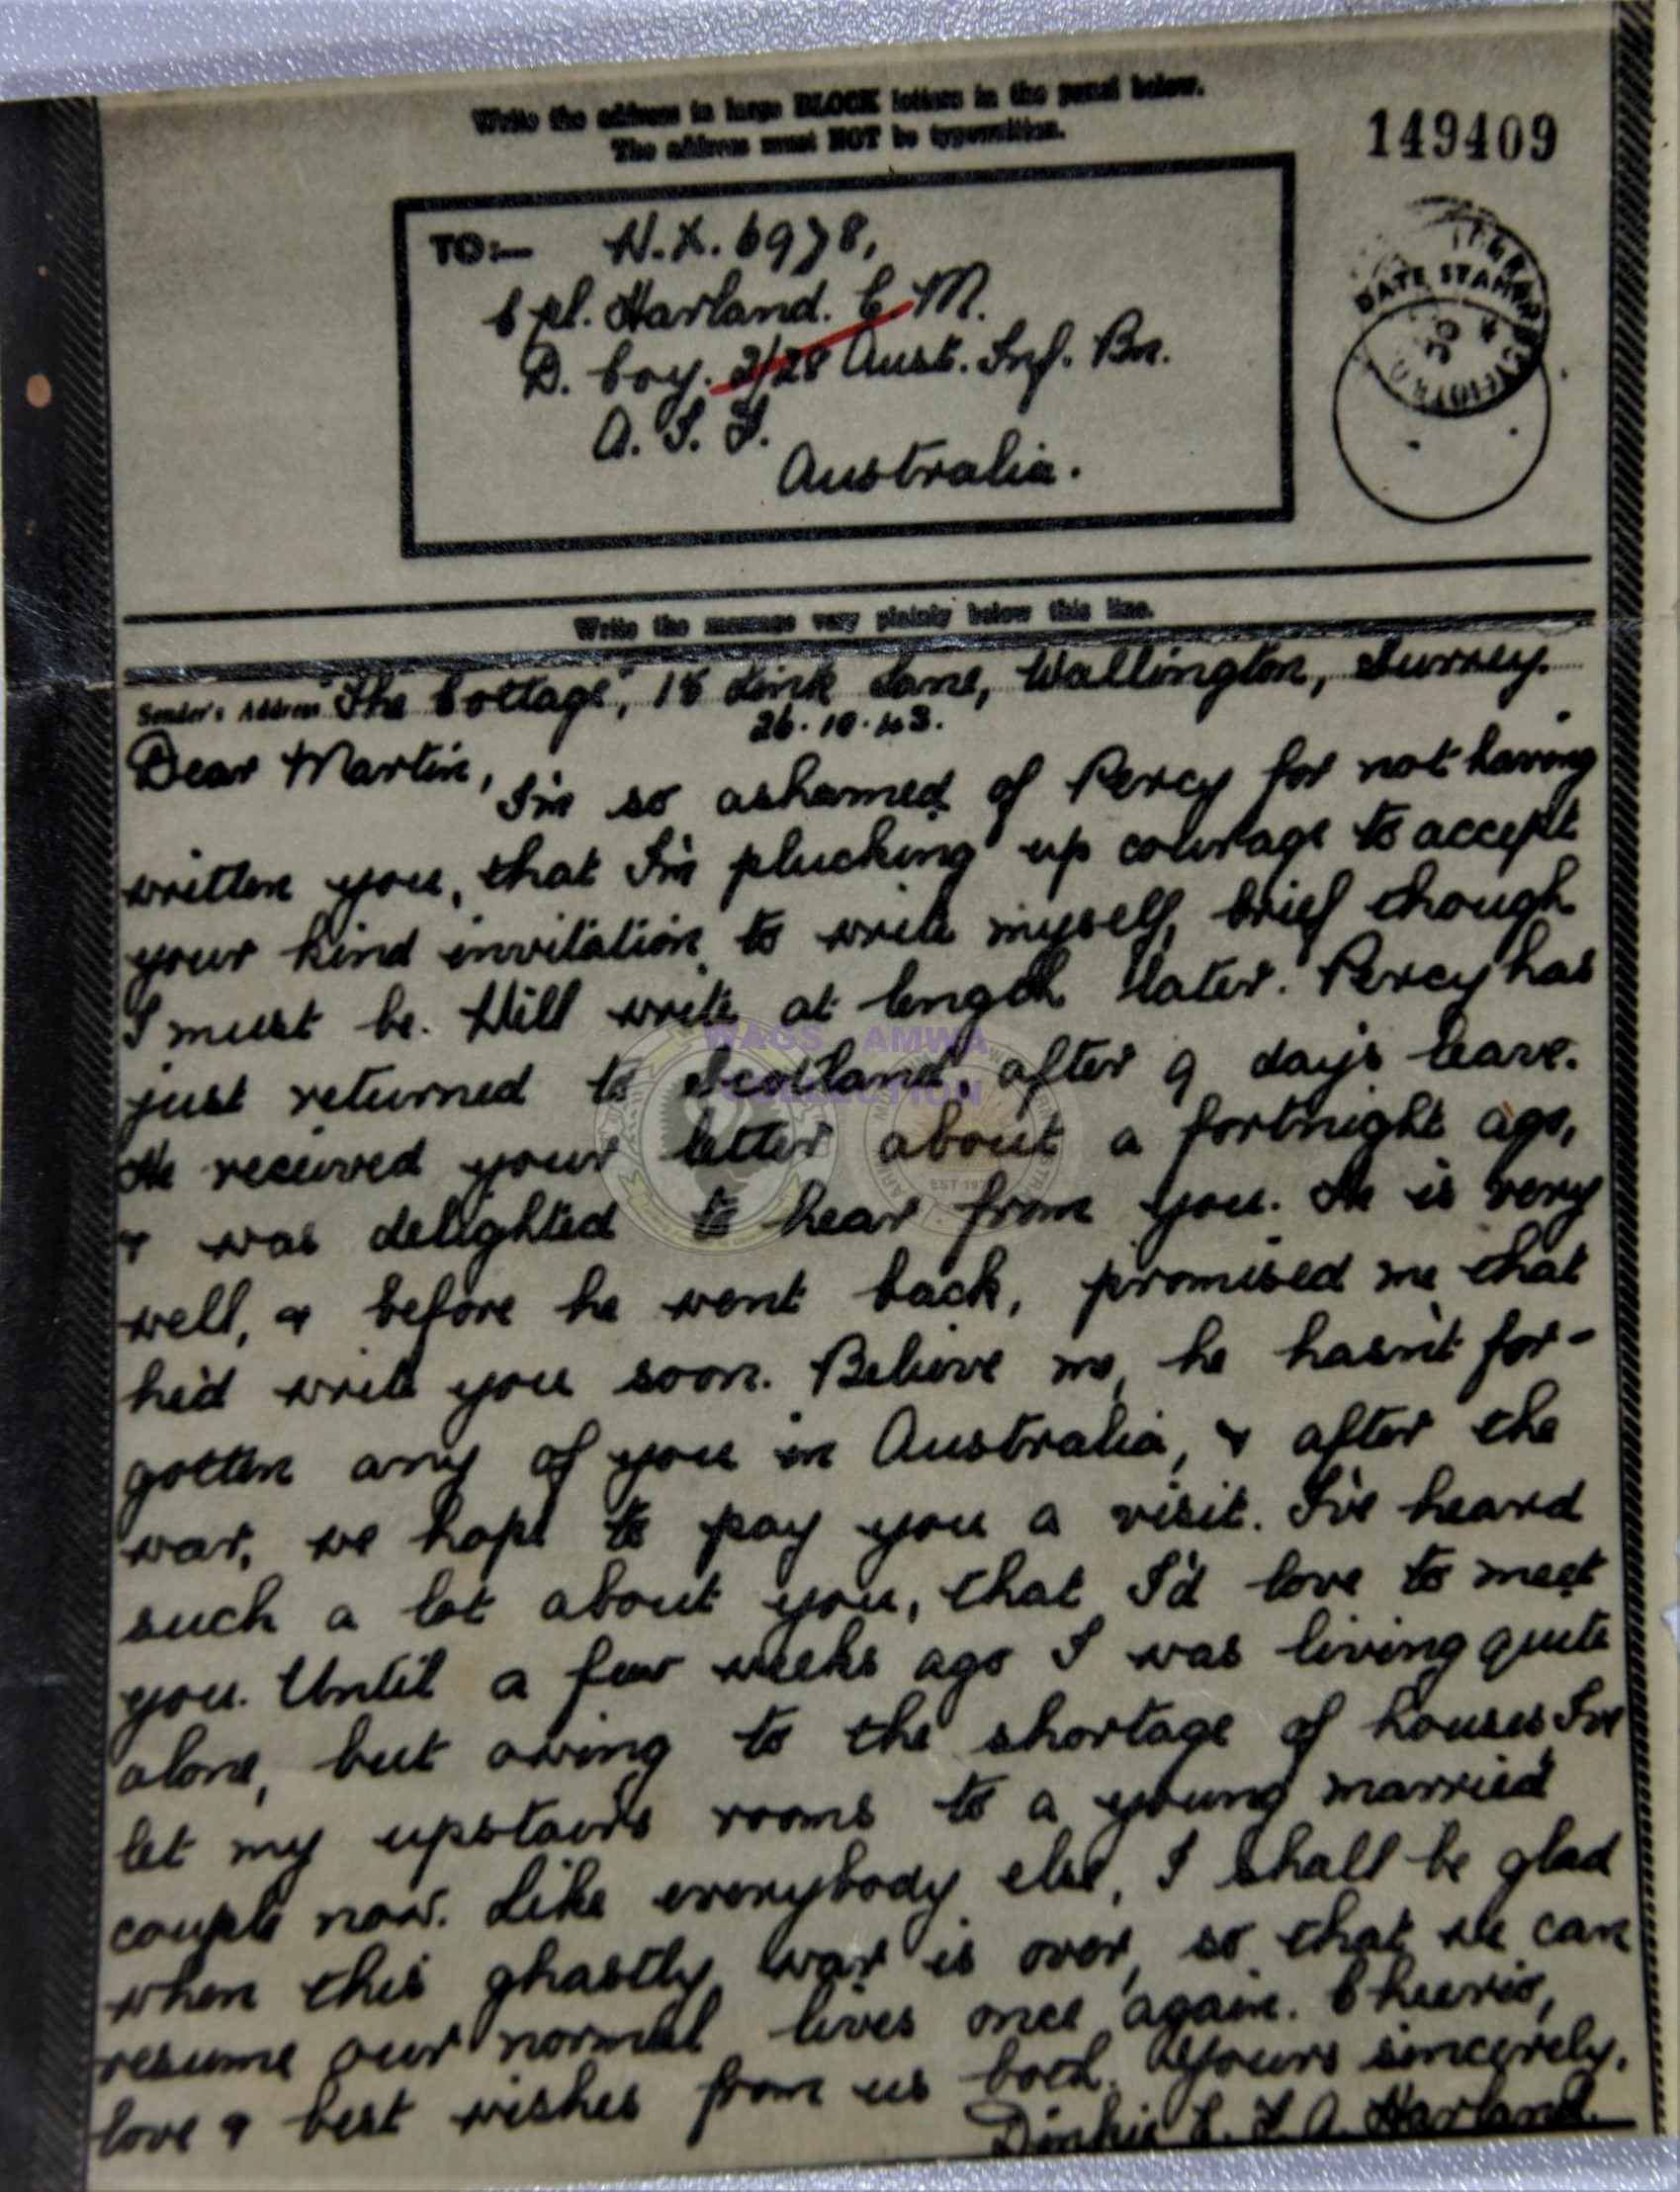 Write the address in large BLOCK letters in the panel below.
The address must NOT be typewritten.
149409
TO:— N.X. 6978,
Cpl. Harland. C. M.
D. Coy. 2/28 Aust. Inf. Bn.
A. I. F.
Australia.
DATE STAMP
Write the message very plainly below this line.
Sender's Address "The Cottage", 18 Link Lane, Wallington, Surrey.
26.10.43.
Dear Martin,
I'm so ashamed of Percy for not having
written you, that I'm plucking up courage to accept
your kind invitation to write myself, brief though
I must be. Will write at length later. Percy has
just returned to Scotland, after 9 days leave.
He received your letter about a fortnight ago,
& was delighted to hear from you. He is very
well, & before he went back, promised me that
he'd write you soon. Believe me, he hasn't for-
gotten any of you in Australia, & after the
war, we hope to pay you a visit. I've heard
such a lot about you, that I'd love to meet
you. Until a few weeks ago I was living quite
alone, but owing to the shortage of houses I've
let my upstairs rooms to a young married
couple now. Like everybody else, I shall be glad
when this ghastly war is over, so that we can
resume our normal lives once again. Cheerio,
love & best wishes from us both. Yours sincerely,
Harland.
WAGS AMWA
COLLECTION